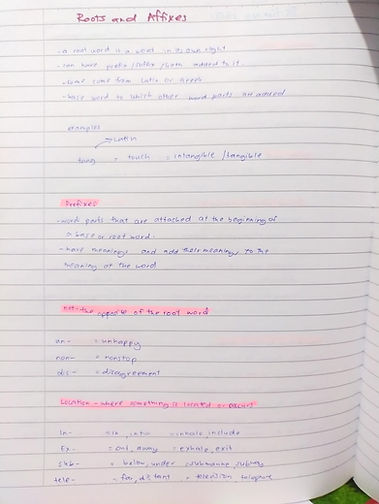 Roots and Affixes
- a root word is a word in its own right
- can have prefix / suffix / both added to it.
- some come from Latin or Greek
- base word to which other word parts are added
examples
Latin
tang = touch = intangible / tangible
Prefixes
- word parts that are attached at the beginning of
a base or root word.
- have meanings and add their meaning to the
meaning of the word
not - the opposite of the root word
un- = unhappy
non- = nonstop
dis- = disagreement
Location - where something is located or occurs
In- = in, into = inhale, include
Ex- = out, away = exhale, exit
Sub- = below, under = submarine, subway
tele- = far, distant = television